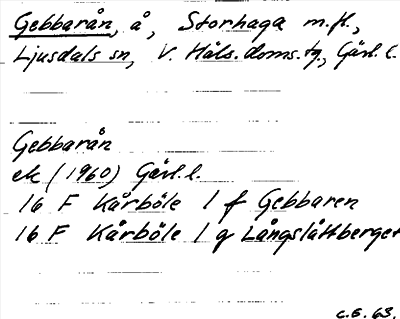 Gebbarån, å, Storhaga m.fl.,
Ljusdals sn, V. Häls. doms.tg., Gävl. l.
Gebbarån
ek (1960) Gävl. l.
16 F Kårböle 1 f Gebbaren
16 F Kårböle 1 g Långslåttberget
C.E. 63.